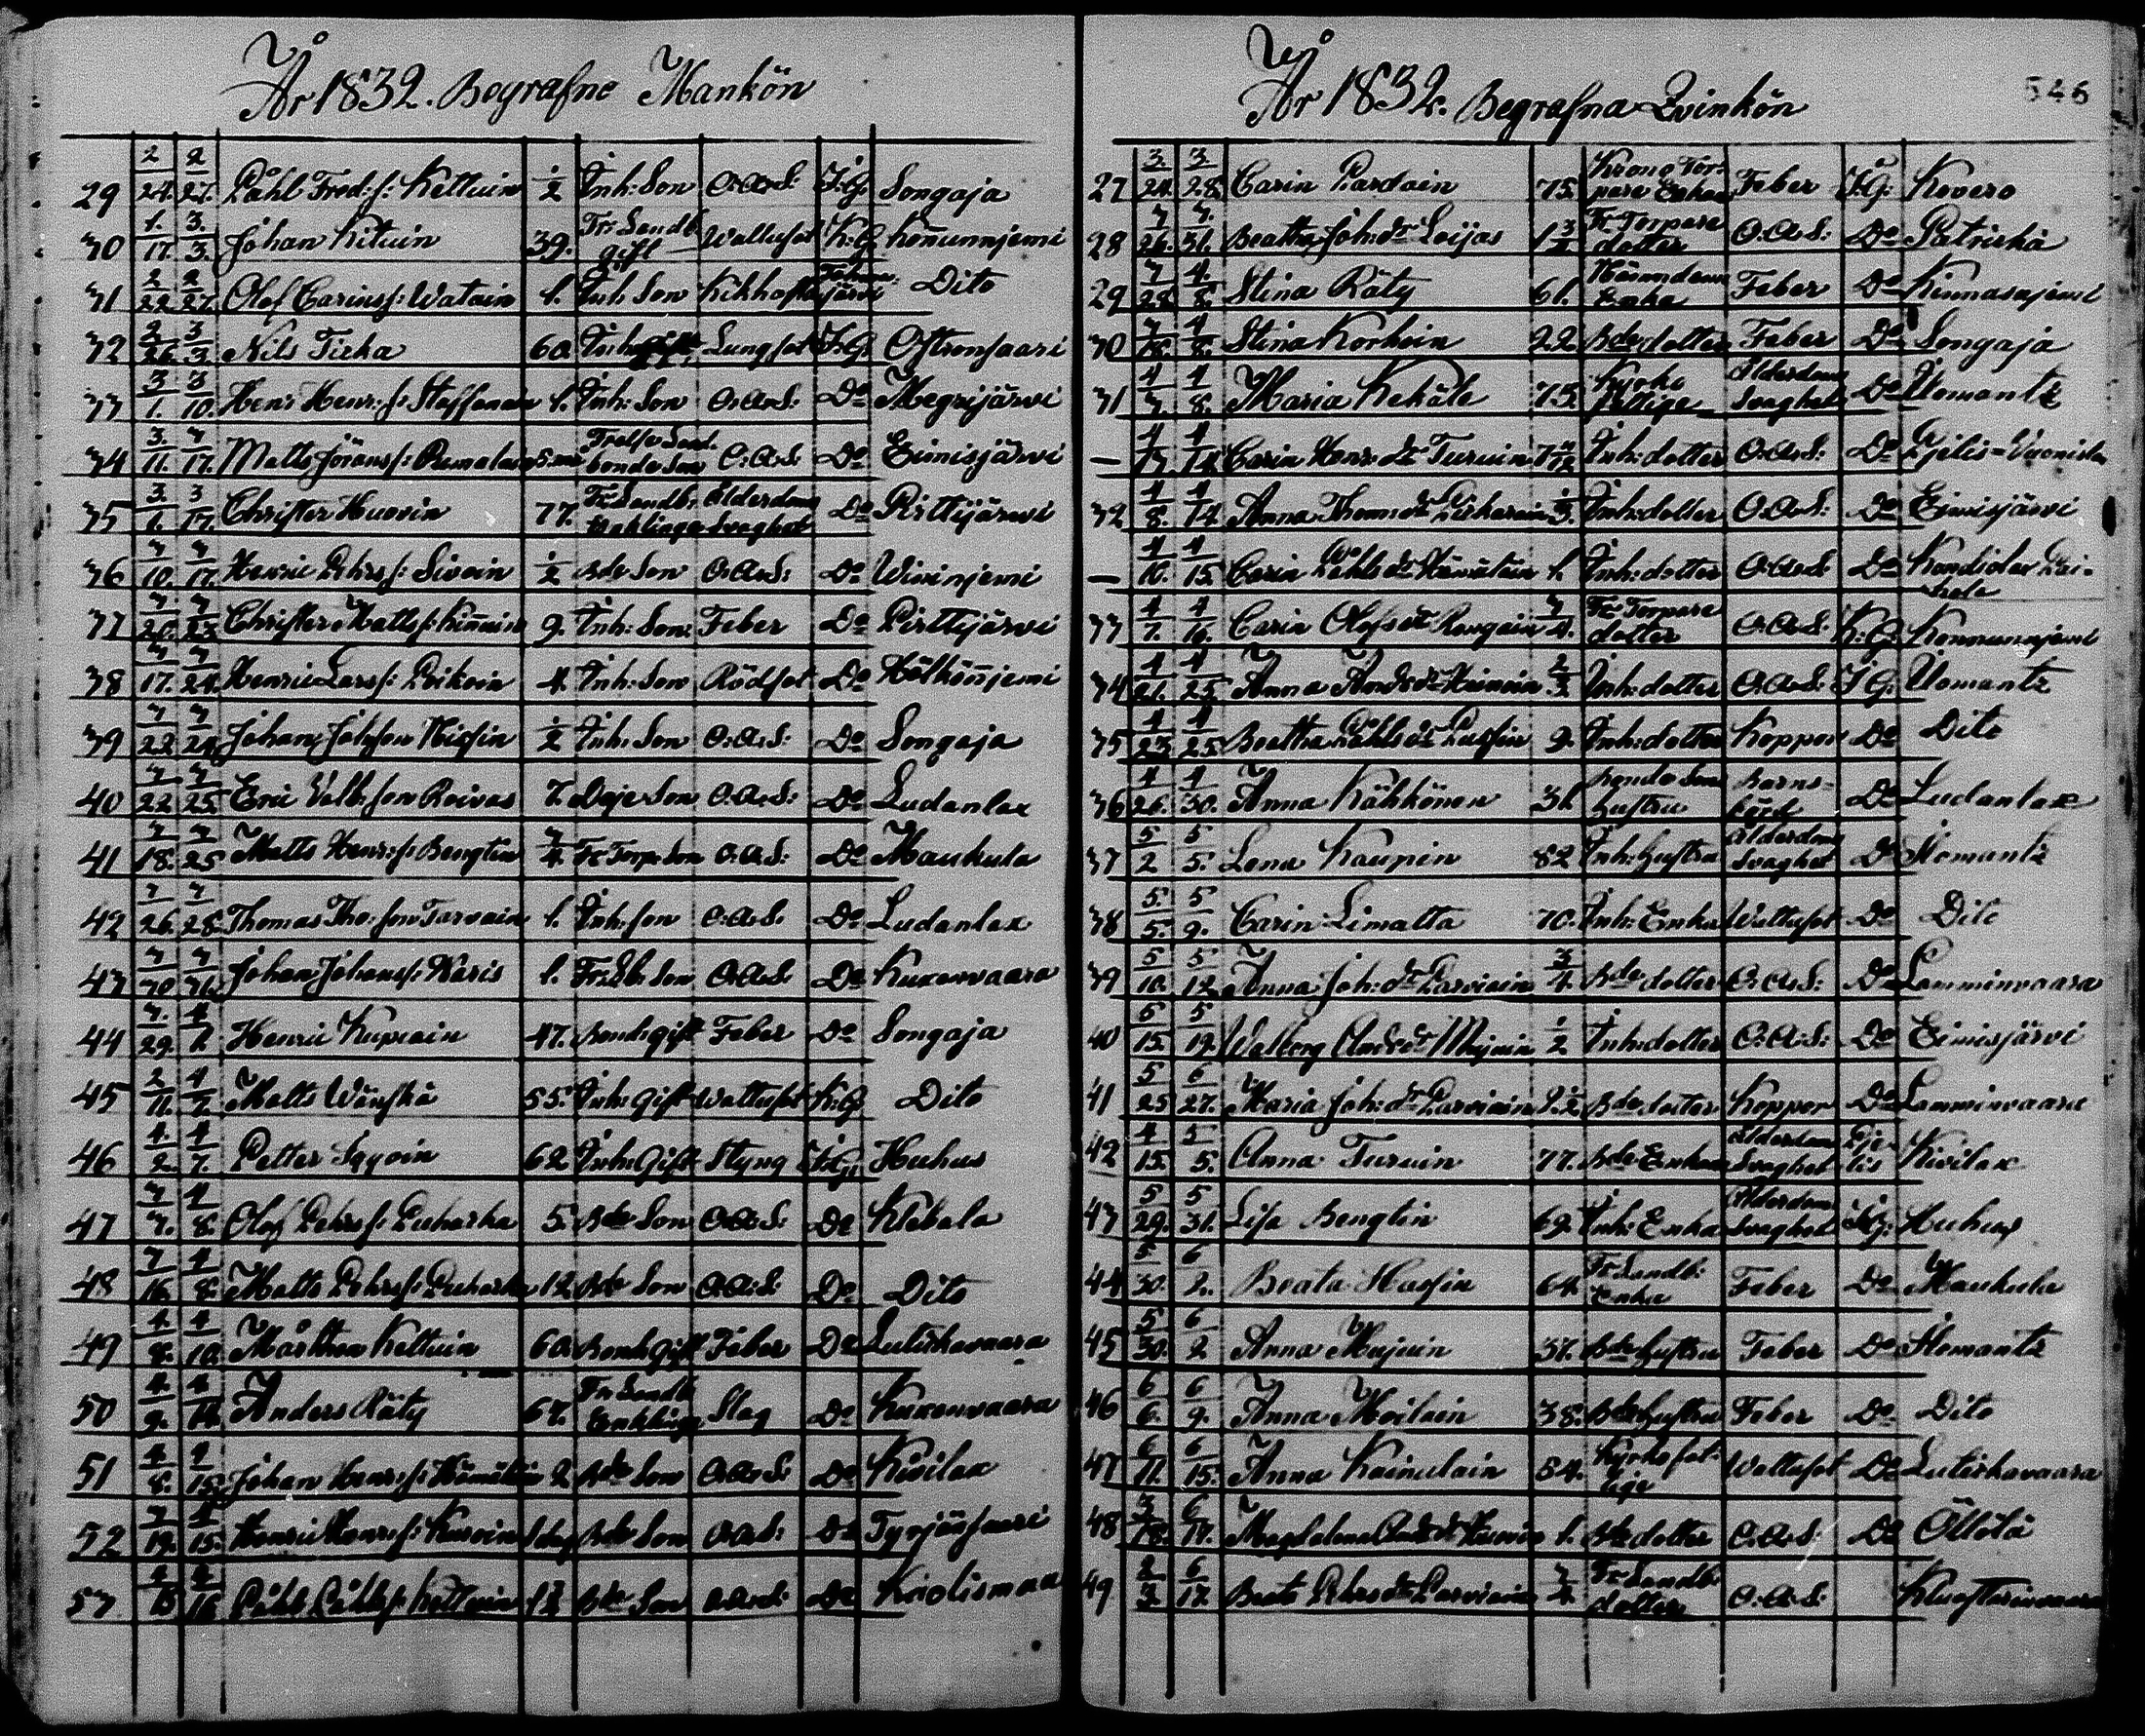 År 1832. Begrafne Mankön
29 2/24. 2/27. Påhl Fred:s: Kettuin 1/2 Inh: Son O.a.S: I:G. Songaja
30 1./17. 3./3. Johan Kituin 39. Fr: Landb. gift Wattusot K:G. Konnunnjemi
31 2/22. 2/27. Olof Carins s: Watain 1. Inh. Son Kikhosta Dito
32 2/26. 3/3. Nils Tirka 60. Inh: gift Lungsot I:G. Oftronsaari
33 3/1. 3/10. Henr: Henr: s: 1. Inh: Son O:a:S: Do Megrijärvi
34 3./11. 3/17. Matts Jörans s: Fralse Land. bonde Son O:A:S: Do Eimisjärvi
35 3./1. 3/17. Christer Huovin 77. Fr: Landb: Enklinge Ålderdoms Svaghet Do Pirttijärvi
36 3/10. 3/17. Henric Pehrs s: Sivoin 1/2 Bde Son O:A:S: Do Wiininjemi
37 3/20. 3/23. Christer Matts s: Kinnuin 9. Inh: Son Feber Do Pirttijärvi
38 3/17. 3/24. Henric Lars s: Poikoin 4. Inh: Son Rödsot Do Hölkönnjemi
39 3/22. 3/24. Johan Johsson Hirsin 1/2 Inh: Son O:A:S: Do Songaja
40 3/22. 3/25. Eric Valb: son Roivas 7. Deje Son O:A:S: Do Ludanlax
41 3/18. 3/25 Matts Henr: s: Bengtin 3/4 Fr Torp. Son O:A:S: Do Maukula
42 3/26. 3/28. Thomas Tho: son Tarvain 1. Inh: son O:A:S. Do Ludanlax
43 3/30 3/31. Johan Johans s: Karis 1. Fr: Lb: Son O:A:S. Do Kuxenvaara
44 3./29. 4/1. Henric Kuprain 47. Bond: gift Feber Do Songaja
45 2/11. 4/7. Matts Wänskä 55. Inh: Gift Wattusot K:G. Dito
46 4./2. 4/7. Petter Iqvoin 62 Inh: Gift Styng I:G. Huhus
47 3/7. 4/8. Olof Pehrs s: Puharka 5. Bde Son O:A:S: Do Klebala
48 3/16. 4/8. Matts Pehrs s: Puharka 12 Bde Son O:A:S. Do Dito
49 4./8. 4/10. Mårthen Kettuin 60. Bond: Gift Feber Do Lutiskavaara
50 4./9. 4/14. Anders Räty 67. Fr: Landb. Enkling Slag Do Kuxenvaara
51 4./8. 4/15. Johan Henr: s: Hämäläin 2 Bde Son O:A:S. Do Kivilax
52 3/19. 4/15. Henric Henr: s: Bde Son O:A:S: Do Tyrjänsaari
53 Påhl Påhls s: Kettuin Bde Son O:A:S: Do Kriolismaa
År 1832. Begrafna Qvinkön
546
27 3./24. 3./28. Carin Pardain 75. Krono Torpare Enka Feber I:G: Kovero
28 3/26. 3./31. Beatha Joh: dr Loijas 1 3/4 Fr Torpare dotter O:A:S: Do Patriskä
29 3/28. 4./8. Stina Räty 61. Enka Feber Do Kinnasnjemi
30 3/18. 4/8. Stina Korhoin 22. Bde dotter Feber Do Songaja
31 4/3. 4/8. Maria Kekäle 75. Kyrko fattige Ålderdoms Svaghet Do Ilomants
— 4/13. 4/14. Carin Henr: dr Turuin Inh: dotter O:A:S: Do
32 4/8. 4/14. Anna Thom: dr Inh: dotter O:A:S: Do Eimisjärvi
— 4/10. 4/15. Carin Påhls dr Hämäläin 1. Inh: dotter O:A:S. Do
33 4/7. 4/16. Carin Olofs dr 3/4. Fr Torpare dotter O:A:S: K:G: Konnunnjemi
34 4/21. 4/25. Anna And: dr Heinoin 2/3 Inh: dotter O:A:S: I:G: Ilomants
35 4/23. 4/25. Beatha Påhls dr Pussin 9. Inh: dotter Koppor Do Dito
36 4/26. 4/30. Anna Kähkönen 31. Bonde Sons hustru Barnsbörd Do Ludanlax
37 5/2 5/5. Lena Kaupin 82 Inh: hustru Ålderdoms Svaghet Do Ilomants
38 5./5. 5/9. Carin Limatta 70. Inh: Enka Wattusot Do Dito
39 5/10. 5/12. Anna Joh: dr Parviain 3/4. Bde dotter O:A:S: Do Lamminvaara
40 5/15. 5/19. Walborg And: dr Mujuin 1/2 Inh: dotter O:A:S: Do Eimisjärvi
41 5/25 6/27. Maria Joh: dr Parviain 9 1/2 Bde dotter Koppor Do Lamminvaara
42 4/15. 5/5. Anna Turuin 77. Bde Enka Ålderdoms Svaghet Pjelis Kivilax
43 5/29. 5/31. Lisa Bengtin 69. Inh: Enka Ålderdoms Svaghet I:G: Huhus
44 5/30. 6/2. Beata Hassin 64. Fr Landb: Enka Feber Do Maukula
45 5/30. 6/2 Anna Mujuin 37. Bde hustru Feber Do Ilomants
46 6/6. 6/9. Anna Moilain 38. Bde hustru Feber Do Dito
47 6/11. 6/15. Anna Kainulain 54. Kyrko fattige Wattusot Do Lutiskavaara
48 3/18. 6/17. Magdelena And: dr 1. Bde dotter O:A:S. Do Öllölä
49 2/3. 6/17. Beata Pehrs dr Parviain 3/4. Fr: Landb: dotter O:A:S.